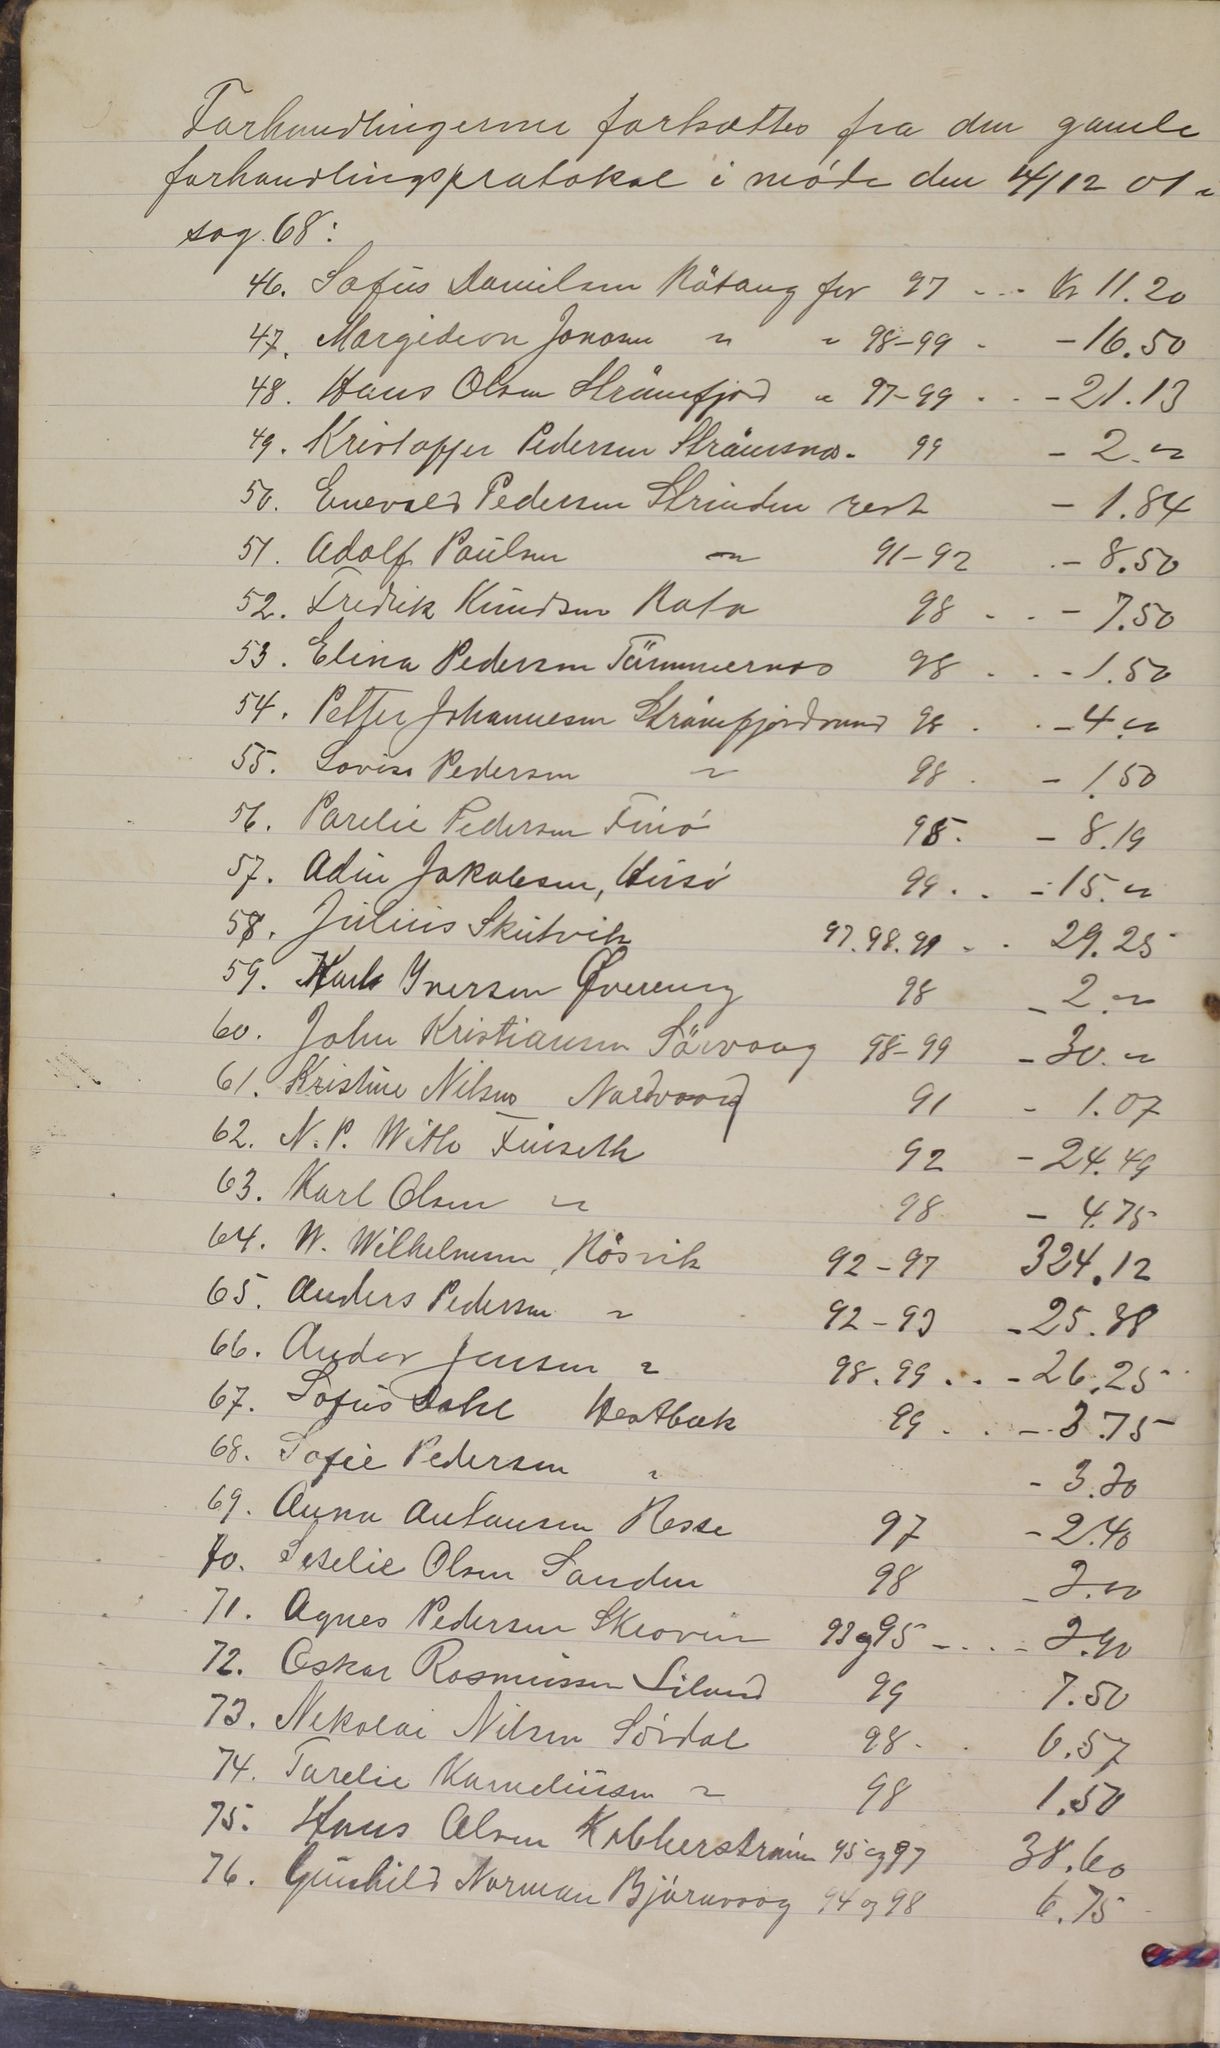 Forhandlingerne fortsættes fra den gamle
forhandlingsprotokol i møde den 14/12 01 -
sag. 68:
46. Sofus Danielsen Råtang for 97 - - - Kr 11.20
47. Margideon Jonsen " " 98-99 - - 16.50
48. Hans Olsen Strömfjord " 97-99 . . - 21.13
49. Kristoffer Pedersen Strömsnes - 99 - 2. "
50. Enevold Pedersen Strinden rest - 1.84
51. Adolf Paulsen " 91-92 . - 8.50
52. Fredrik Knudsen Rota 98 - . - 7.50
53. Elina Pedersen Tömmernes 98 . . - 1.50
54. Petter Johannesen Strömfjordsund 98 . . - 4. "
55. Lovisa Pedersen " 98 . - 1.50
56. Parelie Pedersen Finö 95. - 8.19
57. Adin Jakobsen, 99 . . - 15. "
58. Julius Skutvik 97.98.99 - . 29.25
59. Karl Iversen Øvereng 98 - 2. "
60. John Kristiansen Sörvaag 98-99 - 30. "
61. Kristine Nilsen Nordvaag 91 - 1.07
62. N. P. With Finseth 92 - 24.49
63. Karl Olsen " 98 - 4.75
64. W. Wilhelmsen, Rösvik 92-97 324.12
65. Anders Pedersen " 92-93 - 25.88
66. Andor Jensen " 98.99 . . - 26.25
67. Sofus Dahl Westbæk 99 . . - 3.75
68. Sofie Pedersen " - 3.20
69. Anna Antonsen Resse 97 - 2.40
70. Olsen Sanden 98 - 2.00
71. Agnes Pedersen Skroven 93 og 95 - . . - 2.90
72. Oskar Rasmussen Siland 99 7.50
73. Nikolai Nilsen Sördal 98 - . 6.57
74. Torelie Korneliusen " 98 1.50
75. Hans Olsen Kobberström 95 og 97 38.60
76. Gunhild Norman Björnvaag 94 og 98 6.75